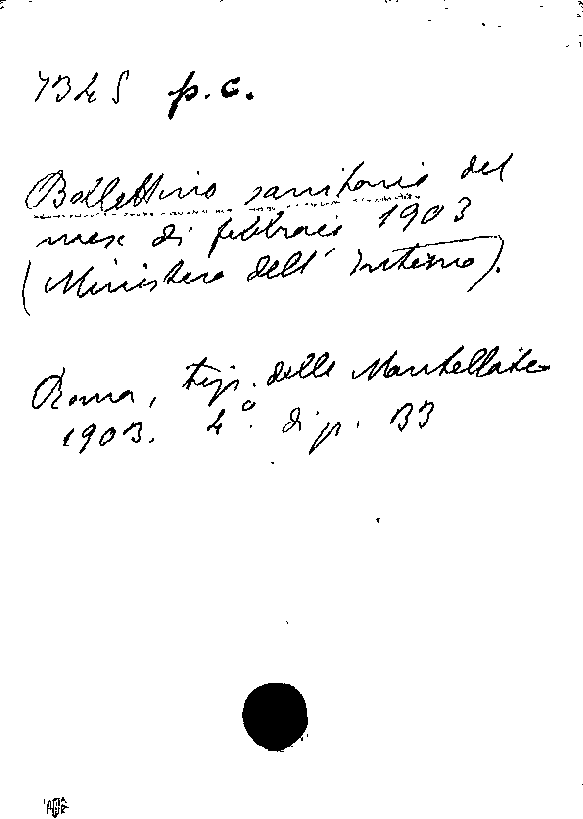 7345 p.c.
Bollettino sanitario del
mese di febbraio 1903
(Ministero dell' Interno).
Roma, tip. delle Mantellate
1903. 4°. di p. 33